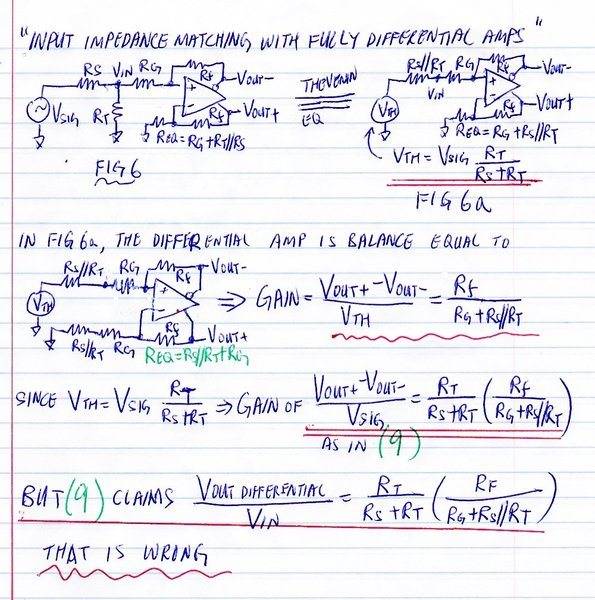 "INPUT IMPEDANCE MATCHING WITH FULLY DIFFERENTIAL AMPS"
RS VIN RG RF VOUT- VOUT+ Rf
VSIG RT REQ = RG + RT//RS
FIG 6
THEVENIN
EQ
RS//RT VIN RG RF VOUT- VOUT+ Rf
VTH REQ = RG + RS//RT
VTH = VSIG RT / RS+RT
FIG 6a
IN FIG 6a, THE DIFFERENTIAL AMP IS BALANCE EQUAL TO
RS//RT RG RF VOUT- VOUT+ Rf
VTH RS//RT RG REQ = RS//RT + RG
⇒ GAIN = VOUT+ - VOUT- / VTH = Rf / RG + RS//RT
SINCE VTH = VSIG RT / RS+RT ⇒ GAIN OF VOUT+ - VOUT- / VSIG = RT / RS+RT ( Rf / RG+RS//RT )
AS IN (9)
BUT (9) CLAIMS VOUT DIFFERENTIAL / VIN = RT / RS+RT ( RF / RG+RS//RT )
THAT IS WRONG